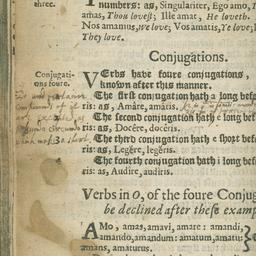 three.
numbers: as, Singulariter, Ego amo, I
amas, Thou lovest: Ille amat, He loveth.
Nos amamus, we love; Vos amatis, Ye love;
They love.
Conjugations.
Conjugati-
ons foure.
VErbs have foure conjugations,
known after this manner.
The first conjugation hath a long befo
ris: as, Amáre, amáris.
The second conjugation hath e long bef
ris: as, Docére, docéris.
The third conjugation hath e short befo
ris: as, Legĕre, legĕris.
The fourth conjugation hath i long be
as, Audire, audiris.
Verbs in O, of the foure Conjug
be declined after these examp
AMo, amas, amavi, amare: amandi,
amando, amandum: amatum, amatu
amans, amaturus.